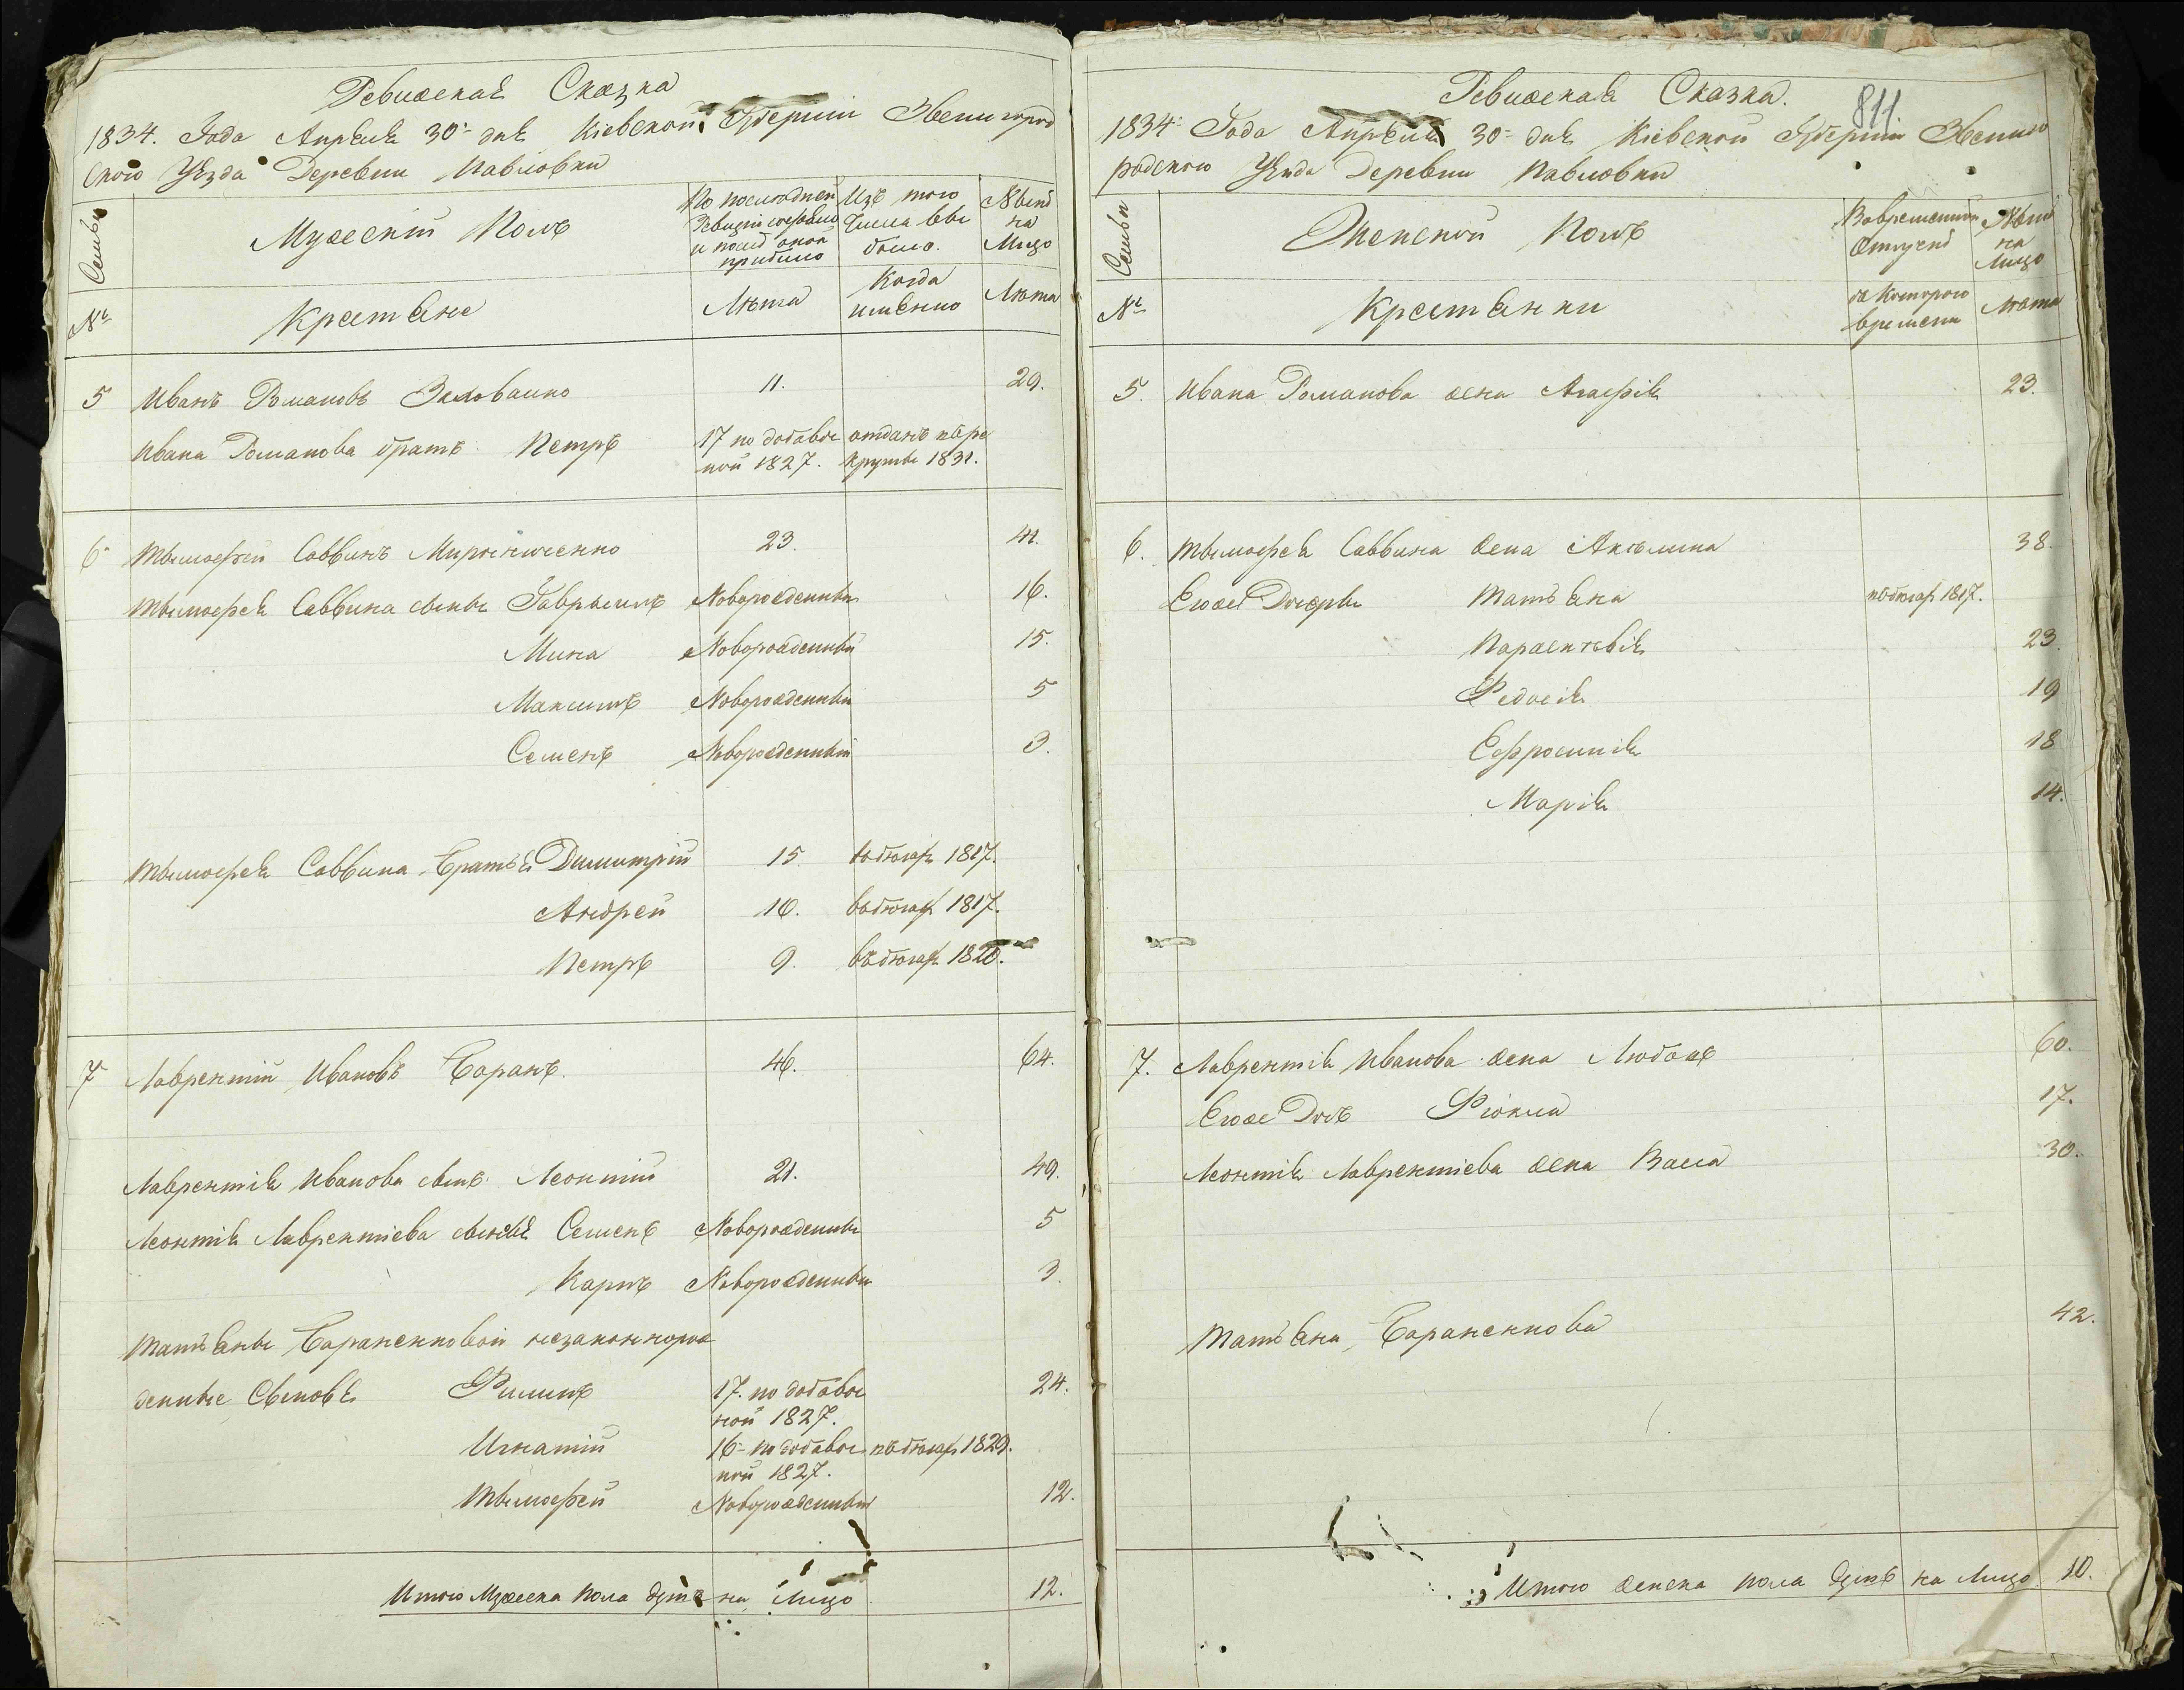 Ревижская Сказка
1834. Года Апреля 30- дня Кіевской Губерніи Звенигород
ского Уезда Деревни Павловки
Семьи
Мужескій Полъ
По последней Ревизіи состояло и после оной прибыло
Изъ того Числа выбыло.
Ныне на Лицо
№
Крестяне
Лета
Когда именно
Лета
5 Иванъ Романовъ 11. 29.
Ивана Романова братъ Петръ 17 по добавочной 1827. отданъ въ рекруты 1831.
6 Тымофей Саввинъ 23. 41.
Тымофея Саввина сыны Гаврыилъ Новорожденный 16.
Мина Новорожденный 15.
Максимъ Новорожденный 5
Семенъ Новорожденный 3.
Тымофея Саввина Братья Димитрій 15. 1817.
Андрей 10. 1817.
Петръ 9. 1820.
7 Лаврентій Ивановъ Баранъ. 46. 64.
Лаврентія Иванова сынъ Леонтій 21. 49.
Леонтія Лаврентіева Семенъ Новорожденный 5
Карпъ Новорожденный 3.
Татьяны Бараненковой незаконнорож
денные Сыновья Филипъ 17. по добавочной 1827. 24.
Игнатій 16- по добавочной 1827. 1829.
Тымофей Новорожденный 12.
Итого Мужеска пола душъ на Лицо 12.
811
Ревижская Сказка.
1834- Года Апреля 30- дня Кіевской Губерніи Звениго
родского Уезда Деревни Павловки
Семьи
Женской Полъ
Вовременной Отлучке
Ныне на Лицо
№
Крестянки
съ Которого времени
Лета
5. Ивана Романова жена Агафія 23.
6. Тымофея Саввина жена Акилина 38.
Егоже Дочеры Татьяна 1817.
Параскевія 23.
Федосія 19
Ефросинія 18
Марія 14.
7. Лаврентія Иванова жена Любовъ 60.
Егоже Дочъ Фіокла 17.
Леонтія Лаврентіева жена Васса 30.
Татьяна Бараненкова 42.
Итого женска пола душъ на Лицо 10.